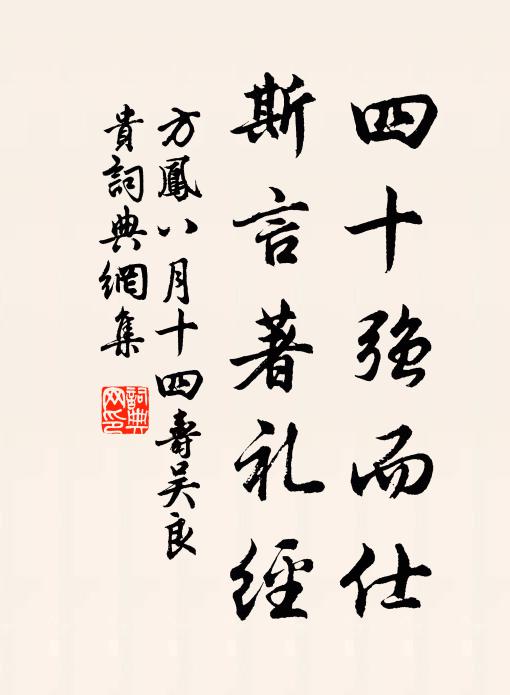 四十強而仕
斯言著礼經
方鳳八月十四壽吳良
貴詞典網集
詞典
网印